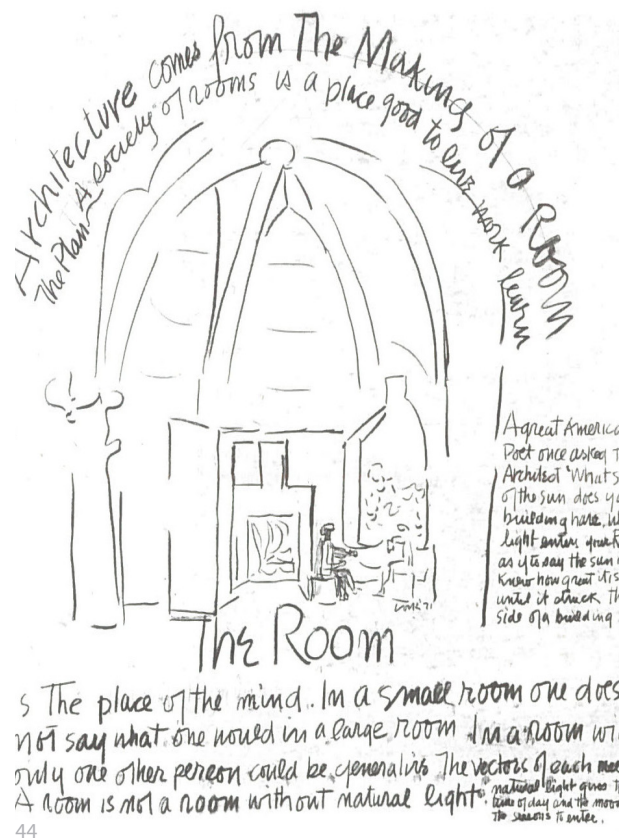 Architecture comes from The Making of a Room
The Plan A society of rooms is a place good to live work learn
A great America
Poet once asked
Architect 'What s
of the sun does yo
building have, w
light enters your R
as if to say the sun
knew how great it is
until it struck Th
side of a building
The Room
s The place of the mind. In a small room one does
not say what one would in a large room In a room wi
only one other person could be generative The vectors of each mee
A room is not a room without natural light.
natural light gives
time of day and the mood
the seasons to enter.
44